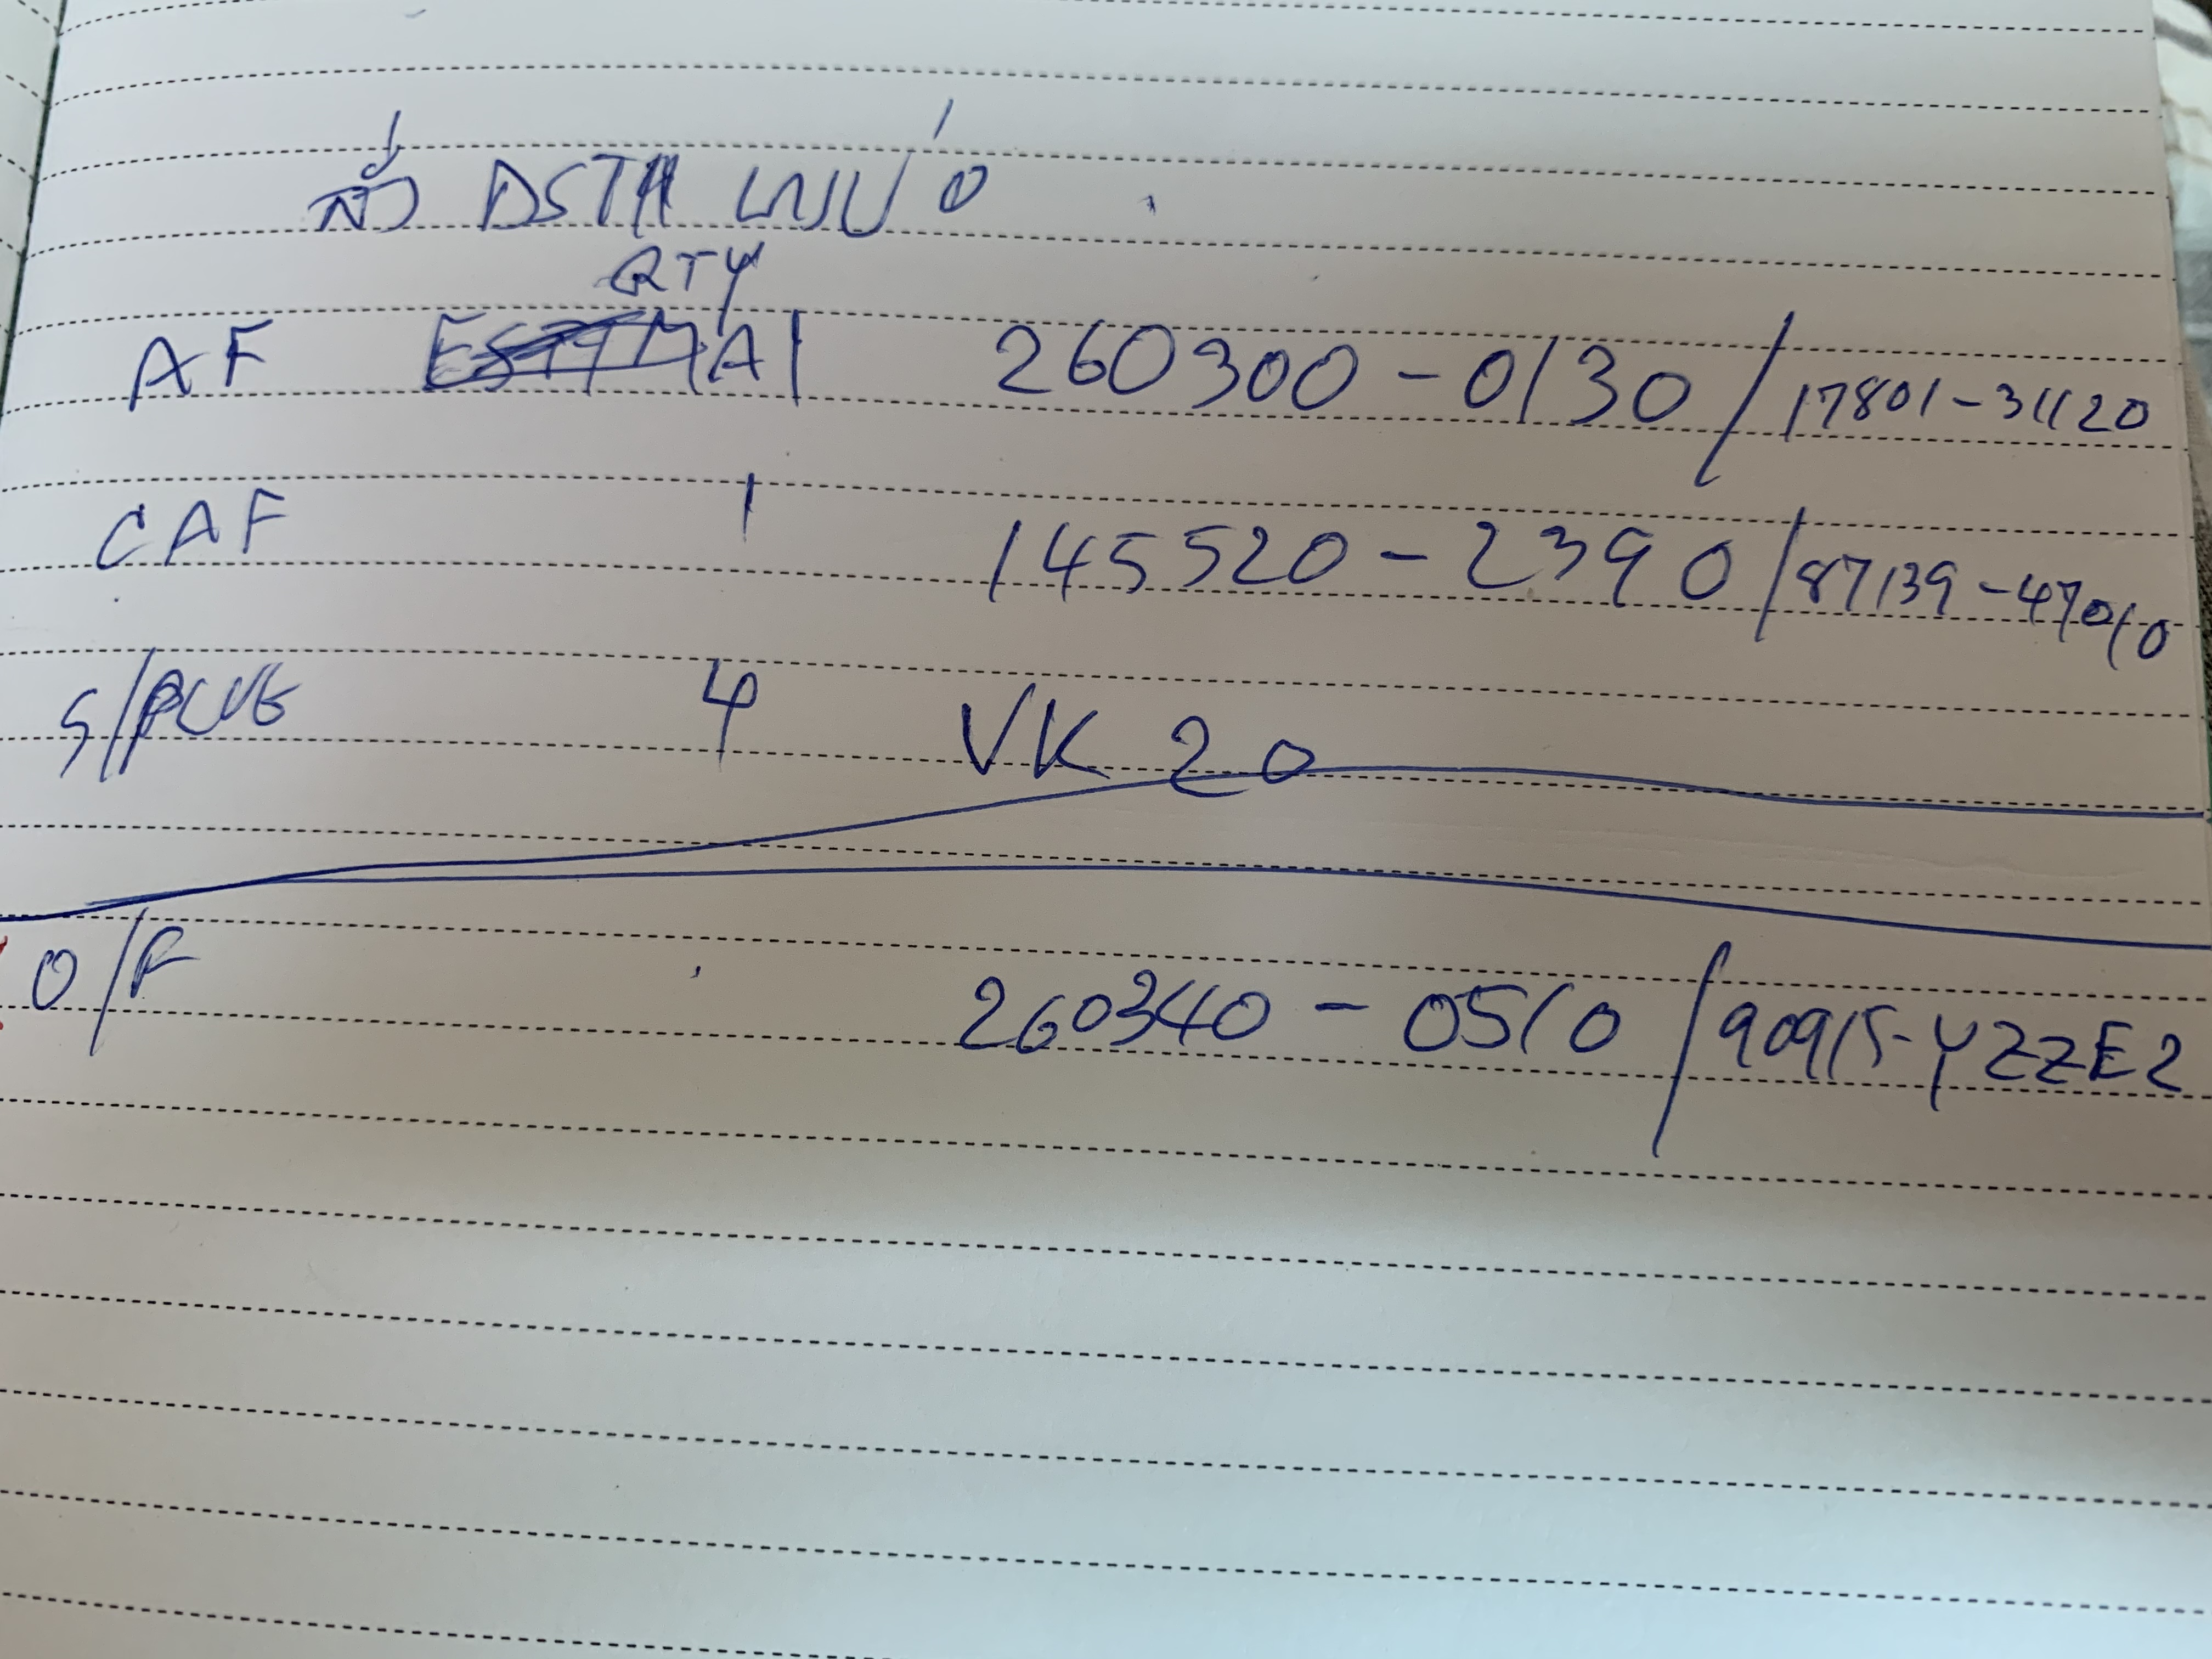 สั่ง DSTH
QTY
AF 1 260300-0130 / 17801-31120
CAF 1 145520-2390 / 87139-47010
S/PLUG 4 VK 20
O/F 260340-0510 / 90915-YZZE2